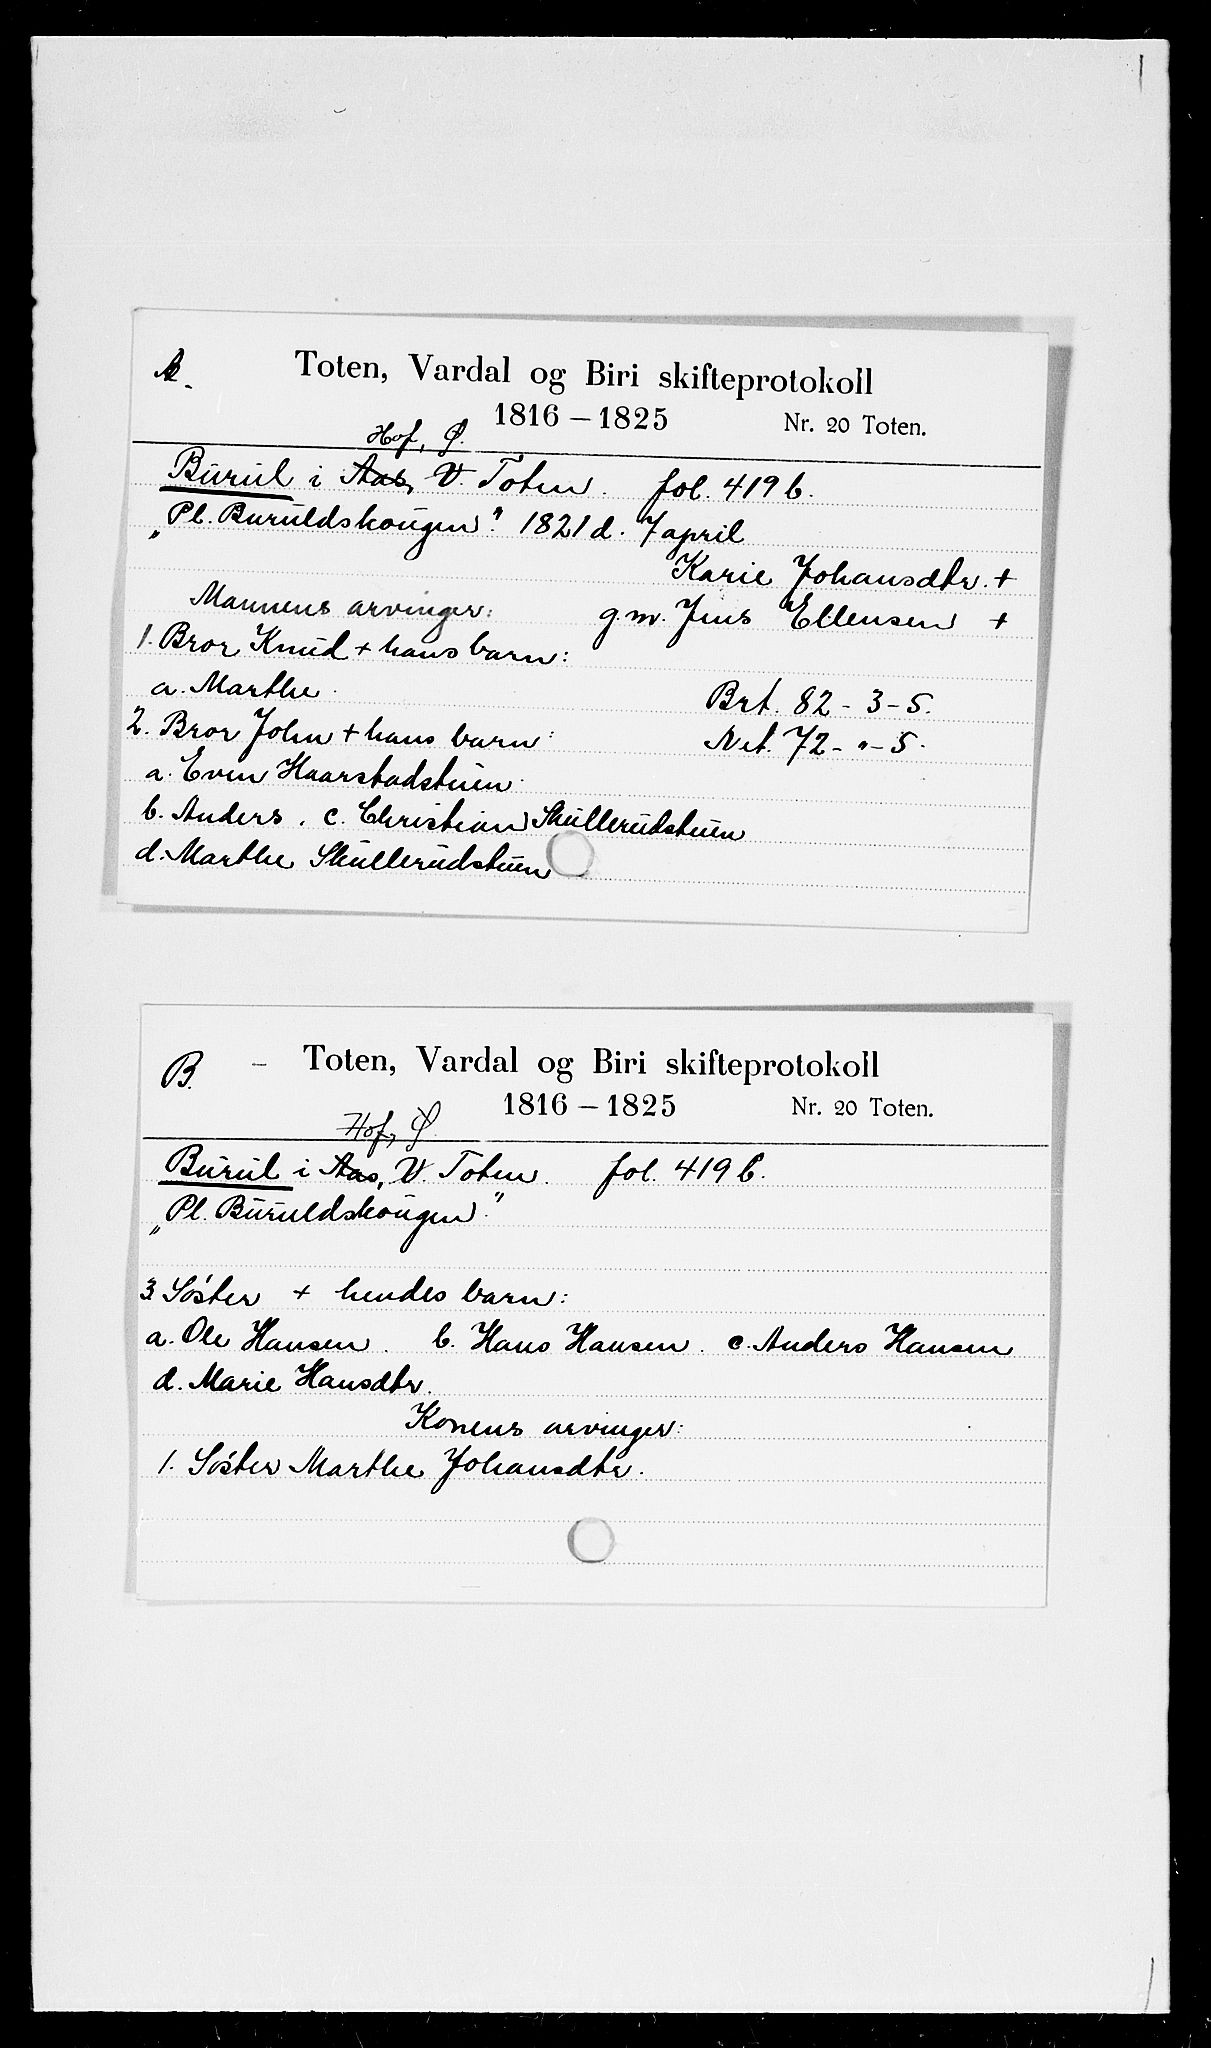 A.
Toten, Vardal og Biri skifteprotokoll
1816 – 1825 Nr. 20 Toten.
Hof, Ø.
Burul i Aas, V. Toten. fol. 419 b.
„Pl. Buruldskougen". 1821 d. 7 april
Karie Johansdtr. +
Mannens arvinger: g.m. Jens Ellensen +
1. Bror Knud + hans barn:
a. Marthe. Brt. 82 - 3 - 5.
2. Bror John + hans barn: Net. 72 - " - 5.
a. Even Haarstadstuen.
b. Anders. c. Christian Skullerudstuen
d. Marthe Skullerudstuen
B. –
Toten, Vardal og Biri skifteprotokoll
1816 – 1825 Nr. 20 Toten.
Hof, Ø.
Burul i Aas, V. Toten. fol. 419 b.
„Pl. Buruldskougen."
3. Søster + hendes barn:
a. Ole Hansen. b. Hans Hansen. c. Anders Hansen
d. Marie Hansdtr.
Konens arvinger:
1. Søster Marthe Johansdtr.